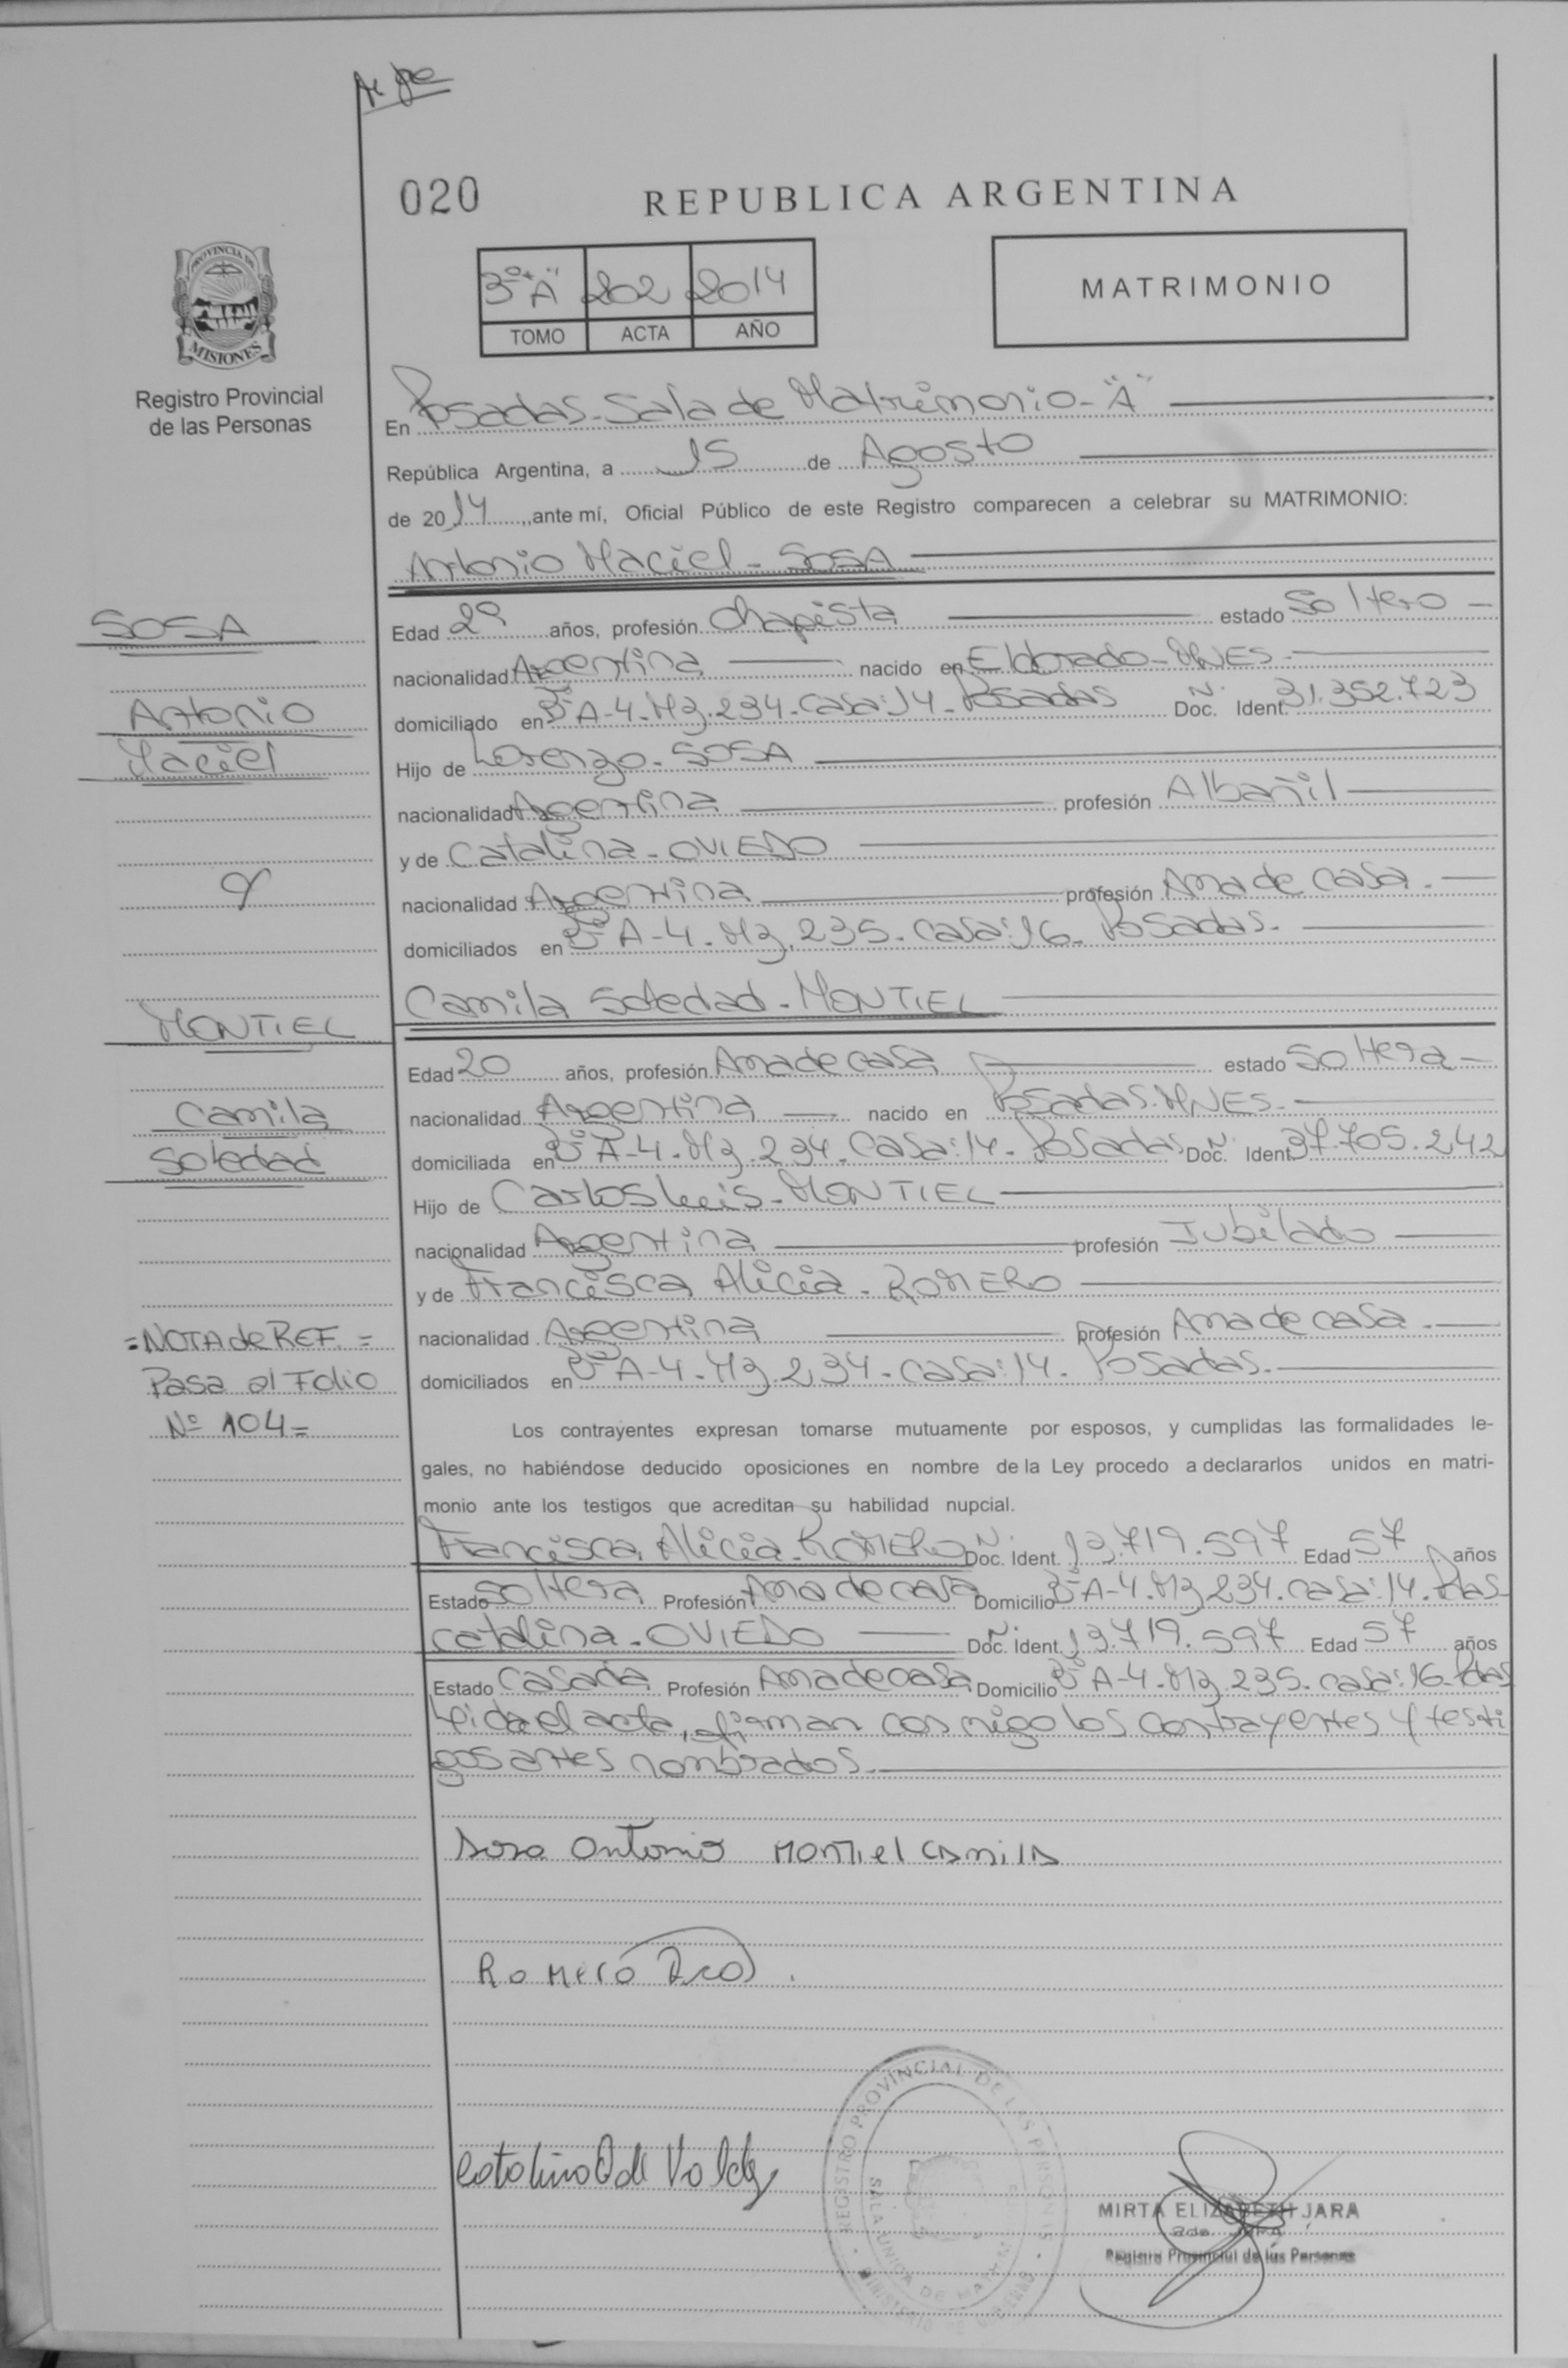 020
REPUBLICA ARGENTINA
PROVINCIA DE
MISIONES
Registro Provincial
de las Personas
3º "A" 202 2014
TOMO ACTA AÑO
MATRIMONIO
En Posadas - Sala de Matrimonio - "A"
República Argentina, a 15 de Agosto
de 2014, ante mí, Oficial Público de este Registro comparecen a celebrar su MATRIMONIO:
Antonio Maciel - SOSA
SOSA
Edad 29 años, profesión Chapista estado Soltero -
nacionalidad Argentina nacido en Eldorado - MNES.
Antonio
domiciliado en Bº A-4 - Mz. 234 - Casa: 14 - Posadas Doc. N. Ident. 31.352.723
Maciel
Hijo de Lorenzo - SOSA
nacionalidad Argentina profesión Albañil
y de Catalina - OVIEDO
y
nacionalidad Argentina profesión Ama de casa.
domiciliados en Bº A-4 - Mz. 235 - Casa: 16 - Posadas.
Camila Soledad - MONTIEL
MONTIEL
Edad 20 años, profesión Ama de casa estado Soltera -
Camila
nacionalidad Argentina nacido en Posadas - MNES.
Soledad
domiciliada en Bº A-4 - Mz. 234 - Casa: 14 - Posadas Doc. N. Ident. 37.705.242
Hijo de Carlos Luis - MONTIEL
nacionalidad Argentina profesión Jubilado
y de Francisca Alicia - ROMERO
= NOTA de REF. =
nacionalidad Argentina profesión Ama de casa.
Pasa al Folio
domiciliados en Bº A-4 - Mz. 234 - Casa: 14 - Posadas.
Nº 104 =
Los contrayentes expresan tomarse mutuamente por esposos, y cumplidas las formalidades le-
gales, no habiéndose deducido oposiciones en nombre de la Ley procedo a declararlos unidos en matri-
monio ante los testigos que acreditan su habilidad nupcial.
Francisca Alicia - ROMERO Doc. N. Ident. 13.719.597 Edad 57 años
Estado Soltera Profesión Ama de casa Domicilio Bº A-4 - Mz 234 - casa: 14 - Pdas
Catalina - OVIEDO Doc. N. Ident. 13.719.597 Edad 57 años
Estado Casada Profesión Ama de casa Domicilio Bº A-4 - Mz. 235 - casa: 16 - Pdas
Leida el acta, firman conmigo los contrayentes y testi
gos antes nombrados.
Sosa Antonio Montiel Camila
Romero
Catalina O de Valdez
REGISTRO PROVINCIAL DE LAS PERSONAS
SALA UNICA DE
MINISTERIO DE GOBIERNO
MIRTA ELIZABETH JARA
Registro Provincial de las Personas